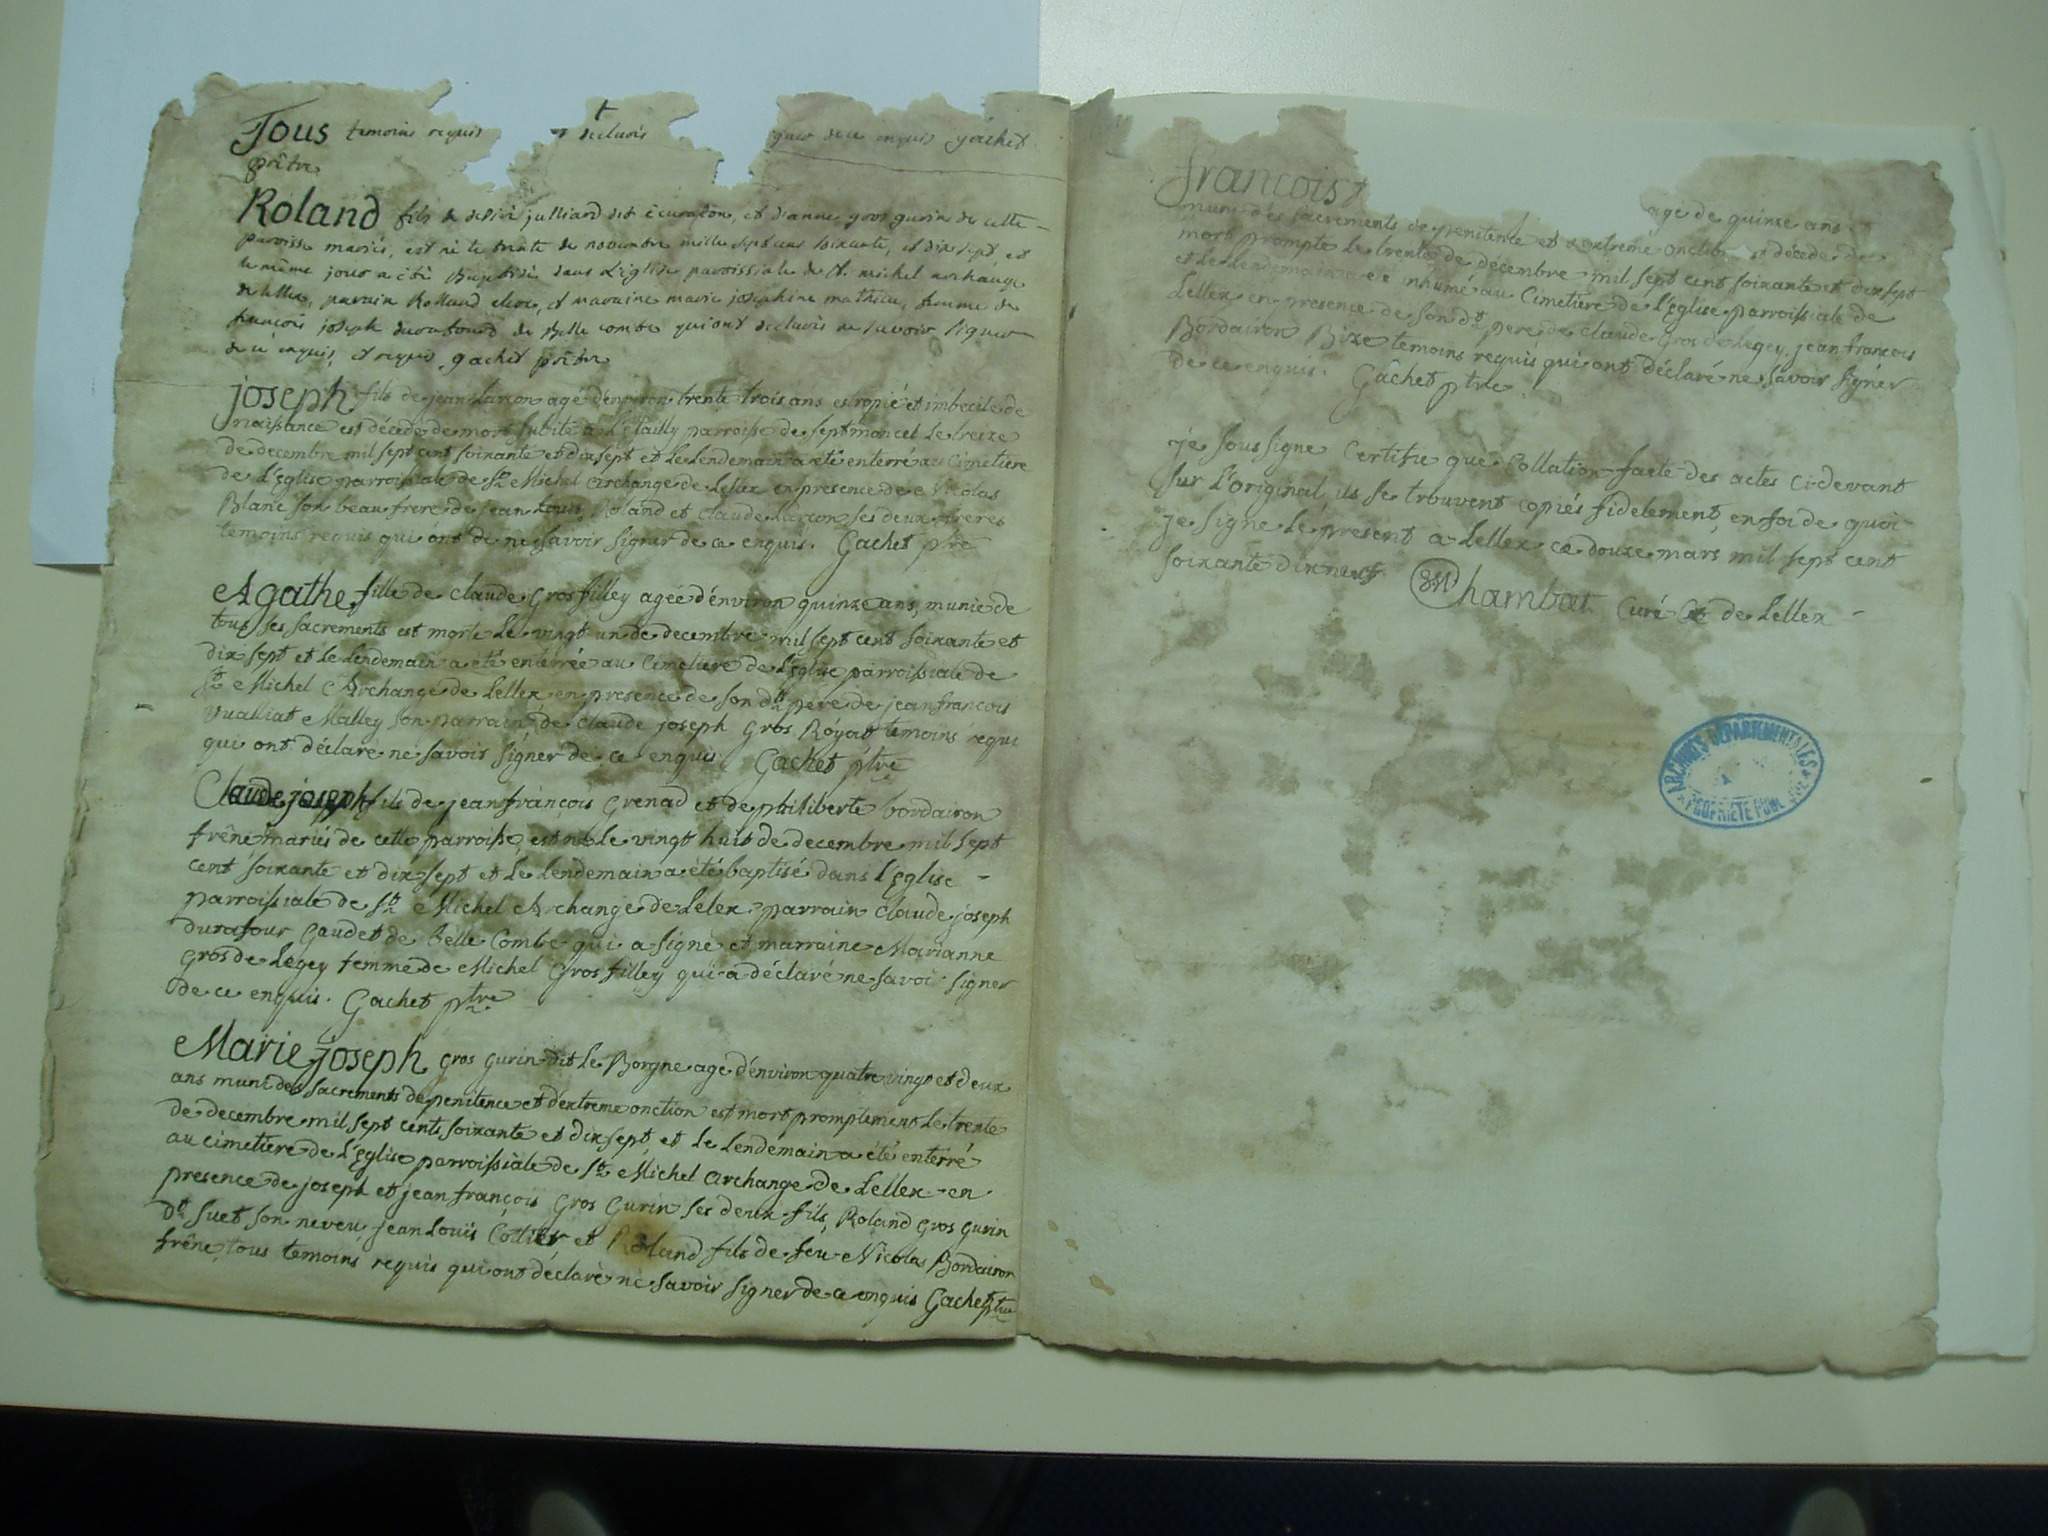 Tous temoins requis declarés de ce enquis gachet
prêtre
Roland fils de julliard dit et d'anne gros gurin de cette
paroisse mariés, est né le trente de novembre mille sept cens soixante, et dix sept, et
le même jour a été Baptisé dans L'église paroissiale de st. michel archange
de lellex, parain Rolland et maraine marie josephine mathieu, femme de
francois joseph de Belle combe qui ont declarés ne savoir signer
de ce enquis, et requis, gachet prêtre
joseph fils de jean Larçon agé d'environ trente trois ans estropié et imbecile de
naissance est décédé de mort subite à parroisse de septmoncel le treize
de decembre mil sept cent soixante et dix sept et le lendemain a été enterré au cimetiere
de L'Eglise parroissiale de St Michel Archange de Lellex en presence de Nicolas
Blanc son beau frere de jean Louis, Roland et Claude Larçon ses deux freres
temoins requis qui ont de ne savoir signer de ce enquis. Gachet ptre
Agathe fille de claude Grosfilley agée d'environ quinze ans, munie de
tous ses sacrements est morte le vingt un de decembre mil sept cent soixante et
dix sept et le lendemain a été enterrée au cimetiere de L'Eglise parroissiale de
St Michel Archange de Lellex en presence de son dt pere de jean francois
Vualliat Malley son parrain de Claude joseph Gros Róyat temoins requi
qui ont déclare ne savoir signer de ce enquis Gachet ptre
Claude joseph fils de jean françois Grenad et de philiberte bordairon
frêne mariés de cette parroisse, est né le vingt huit de decembre mil sept
cent soixante et dix sept et le lendemain a été baptisé dans l'Eglise
parroissiale de St Michel Archange de Lelex. parrain Claude joseph
durafour Gaudet de Belle Combe qui a signé et marraine Marianne
Gros de Legey femme de Michel Grosfilley qui a déclaré ne savoir signer
de ce enquis. Gachet ptre.
Marie joseph gros gurin dit le Borgne age d'environ quatre vingt et deux
ans muni des sacrements de penitence et d'extreme onction est mort promptement le trente
de decembre mil sept cent soixante et dix sept, et le lendemain a été enterré
au cimetiere de L'Eglise parroissiale de St Michel Archange de Lellex en
presence de joseph et jean françois Gros Gurin ses deux fils, Roland gros gurin
dt Suet son neveu jean Louis et Roland fils de feu Nicolas Bordairon
frêne, tous temoins requis qui ont déclaré ne savoir signer de ce enquis Gachet ptre
francois agé de quinze ans
muni des sacrements de penitence et d'extreme onction est décédé de
mort prompte le trente de decembre mil sept cent soixante et dix sept
et le lendemain a été inhumé au Cimetiere de L'Eglise parroissiale de
Lellex en presence de son dt pere de Claude Gros de Legey jean francois
Bordairon Bize temoins requis qui ont déclaré ne savoir signer
de ce enquis. Gachet ptre.
je soussigné Certifie que Collation faite des actes ci devant
sur l'original, ils se trouvent copiés fidelement, en foi de quoi
je signe le present a Lellex ce douze mars mil sept cent
soixante dix neuf Chambat Curé de Lellex
ARCHIVES DEPARTEMENTALES
PROPRIETE PUBLIQUE